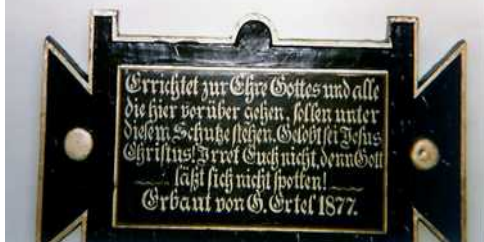 Errichtet zur Ehre Gottes und alle
die hier vorüber gehen, sollen unter
diesem Schutze stehen. Gelobt sei Jesus
Christus! Irret Euch nicht, denn Gott
läßt sich nicht spotten!
Erbaut von G. Ertel 1877.